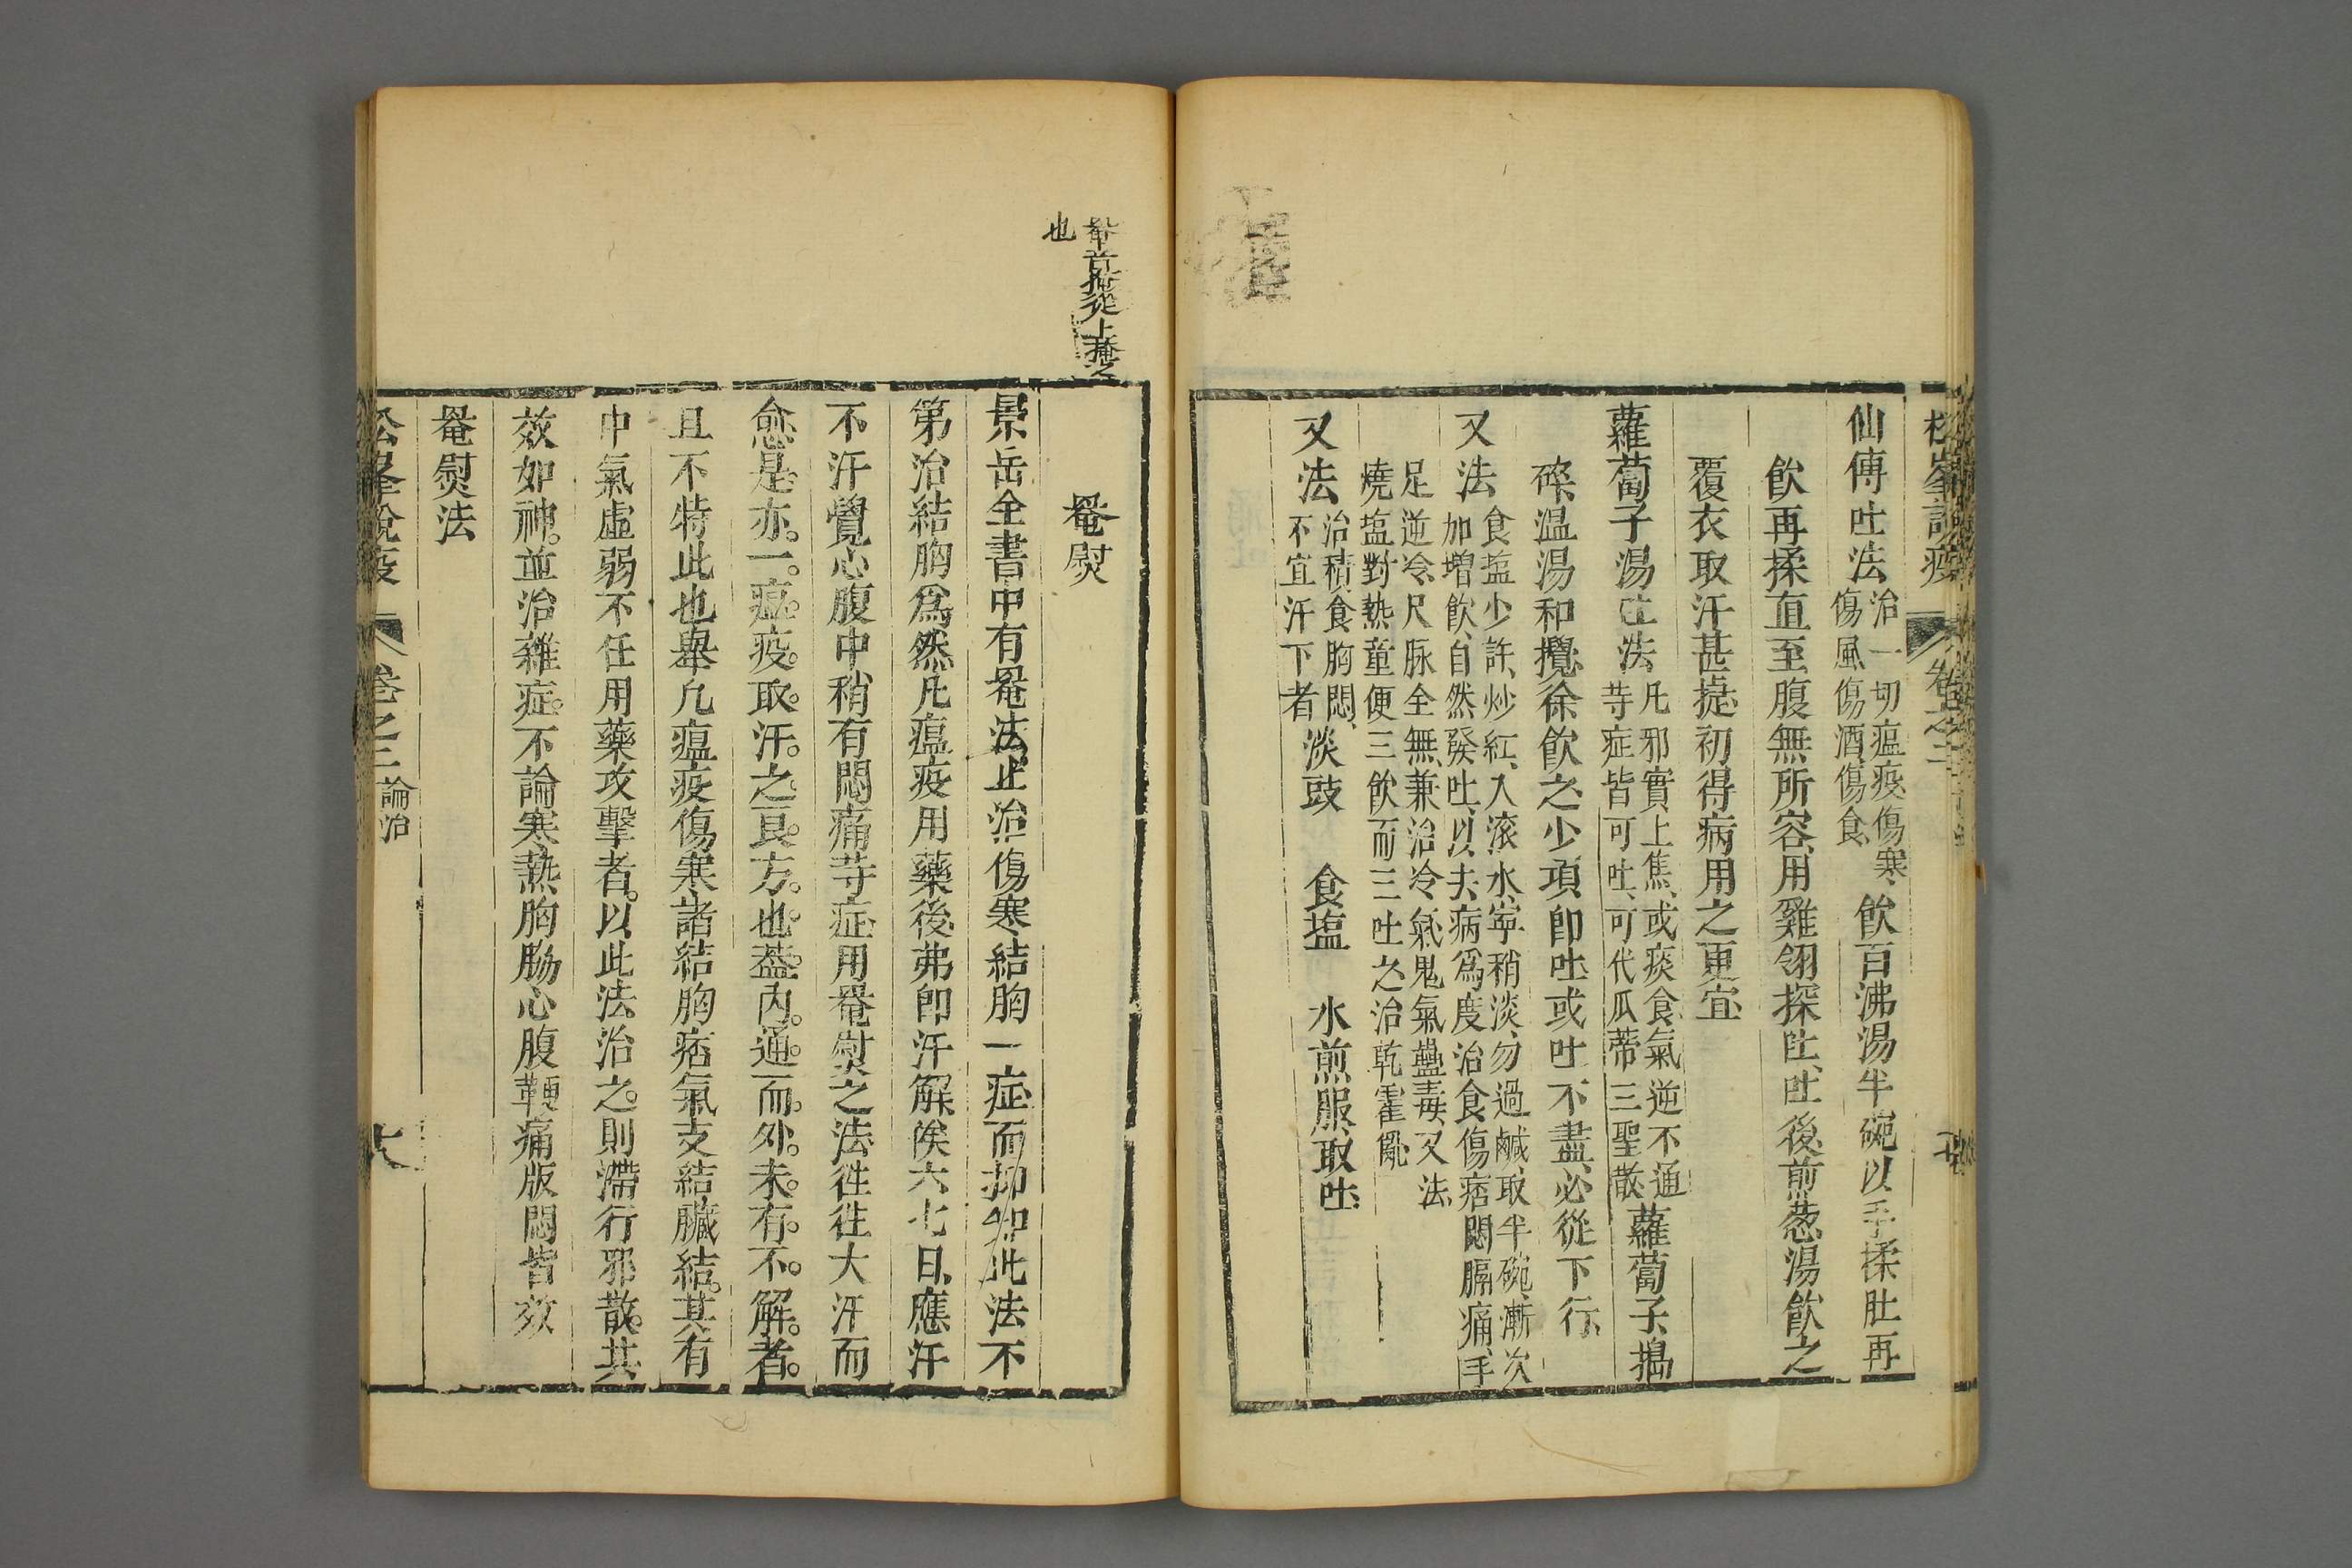 松峯說疫
卷之二
仙傳吐法 治一切瘟疫傷寒、傷風傷酒傷食、 飲百沸湯半碗以手揉肚再
飲再揉直至腹無所容、用雞翎探吐、吐後煎葱湯飲之
覆衣取汗甚㨗初得病用之更宜
蘿蔔子湯吐法 凡邪實上焦、或痰食氣逆不通等症皆可吐、可代瓜蒂三聖散、 蘿蔔子搗
碎、温湯和攪、徐飲之少項即吐、或吐不盡、必從下行、
又法 食塩少許、炒紅、入滚水、寧稍淡、勿過鹹、取半碗、漸次加增飲、自然發吐、以去病爲度治食傷痞悶膈痛、手
足逆冷、尺脉全無、兼治冷氣鬼氣蠱毒、又法
燒塩對熱童便三飲而三吐之治乾霍亂
又法 治積食胸悶、不宜汗下者 淡豉 食塩 水煎服、取吐
罨音掩從上掩之
也
罨熨
景岳全書中有罨法止治傷寒結胸一症而抑知此法不
第治結胸爲然凡瘟疫用藥後弗即汗解俟六七日應汗
不汗覺心腹中稍有悶痛等症用罨熨之法徃徃大汗而
愈是亦。一。瘟。疫。取。汗。之。良。方。也。蓋。内。通。而。外。未。有。不。解。者。
且不特此也舉凡瘟疫傷寒諸結胸痞氣支結臟結。其有
中氣虛弱不任用藥攻擊者。以此法治之。則滯行邪散。其
效如神。並治雜症。不論寒熱胸胁心腹鞕痛版悶皆效
罨熨法
松峯說疫
卷之二
論治